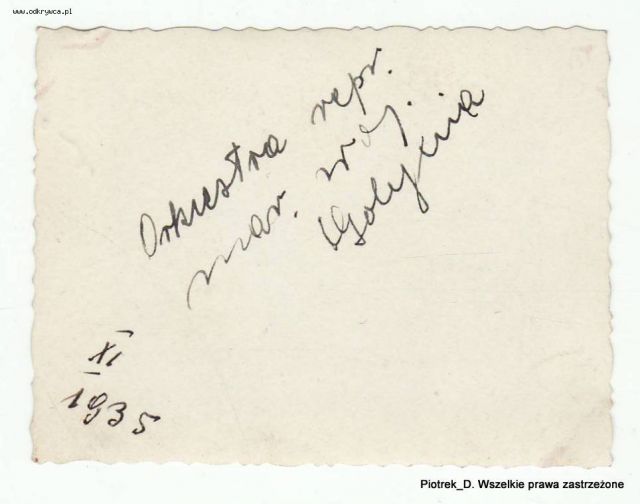 www.odkrywca.pl
Orkiestra repr.
mar. woj.
XI
1935
Piotrek_D. Wszelkie prawa zastrzeżone